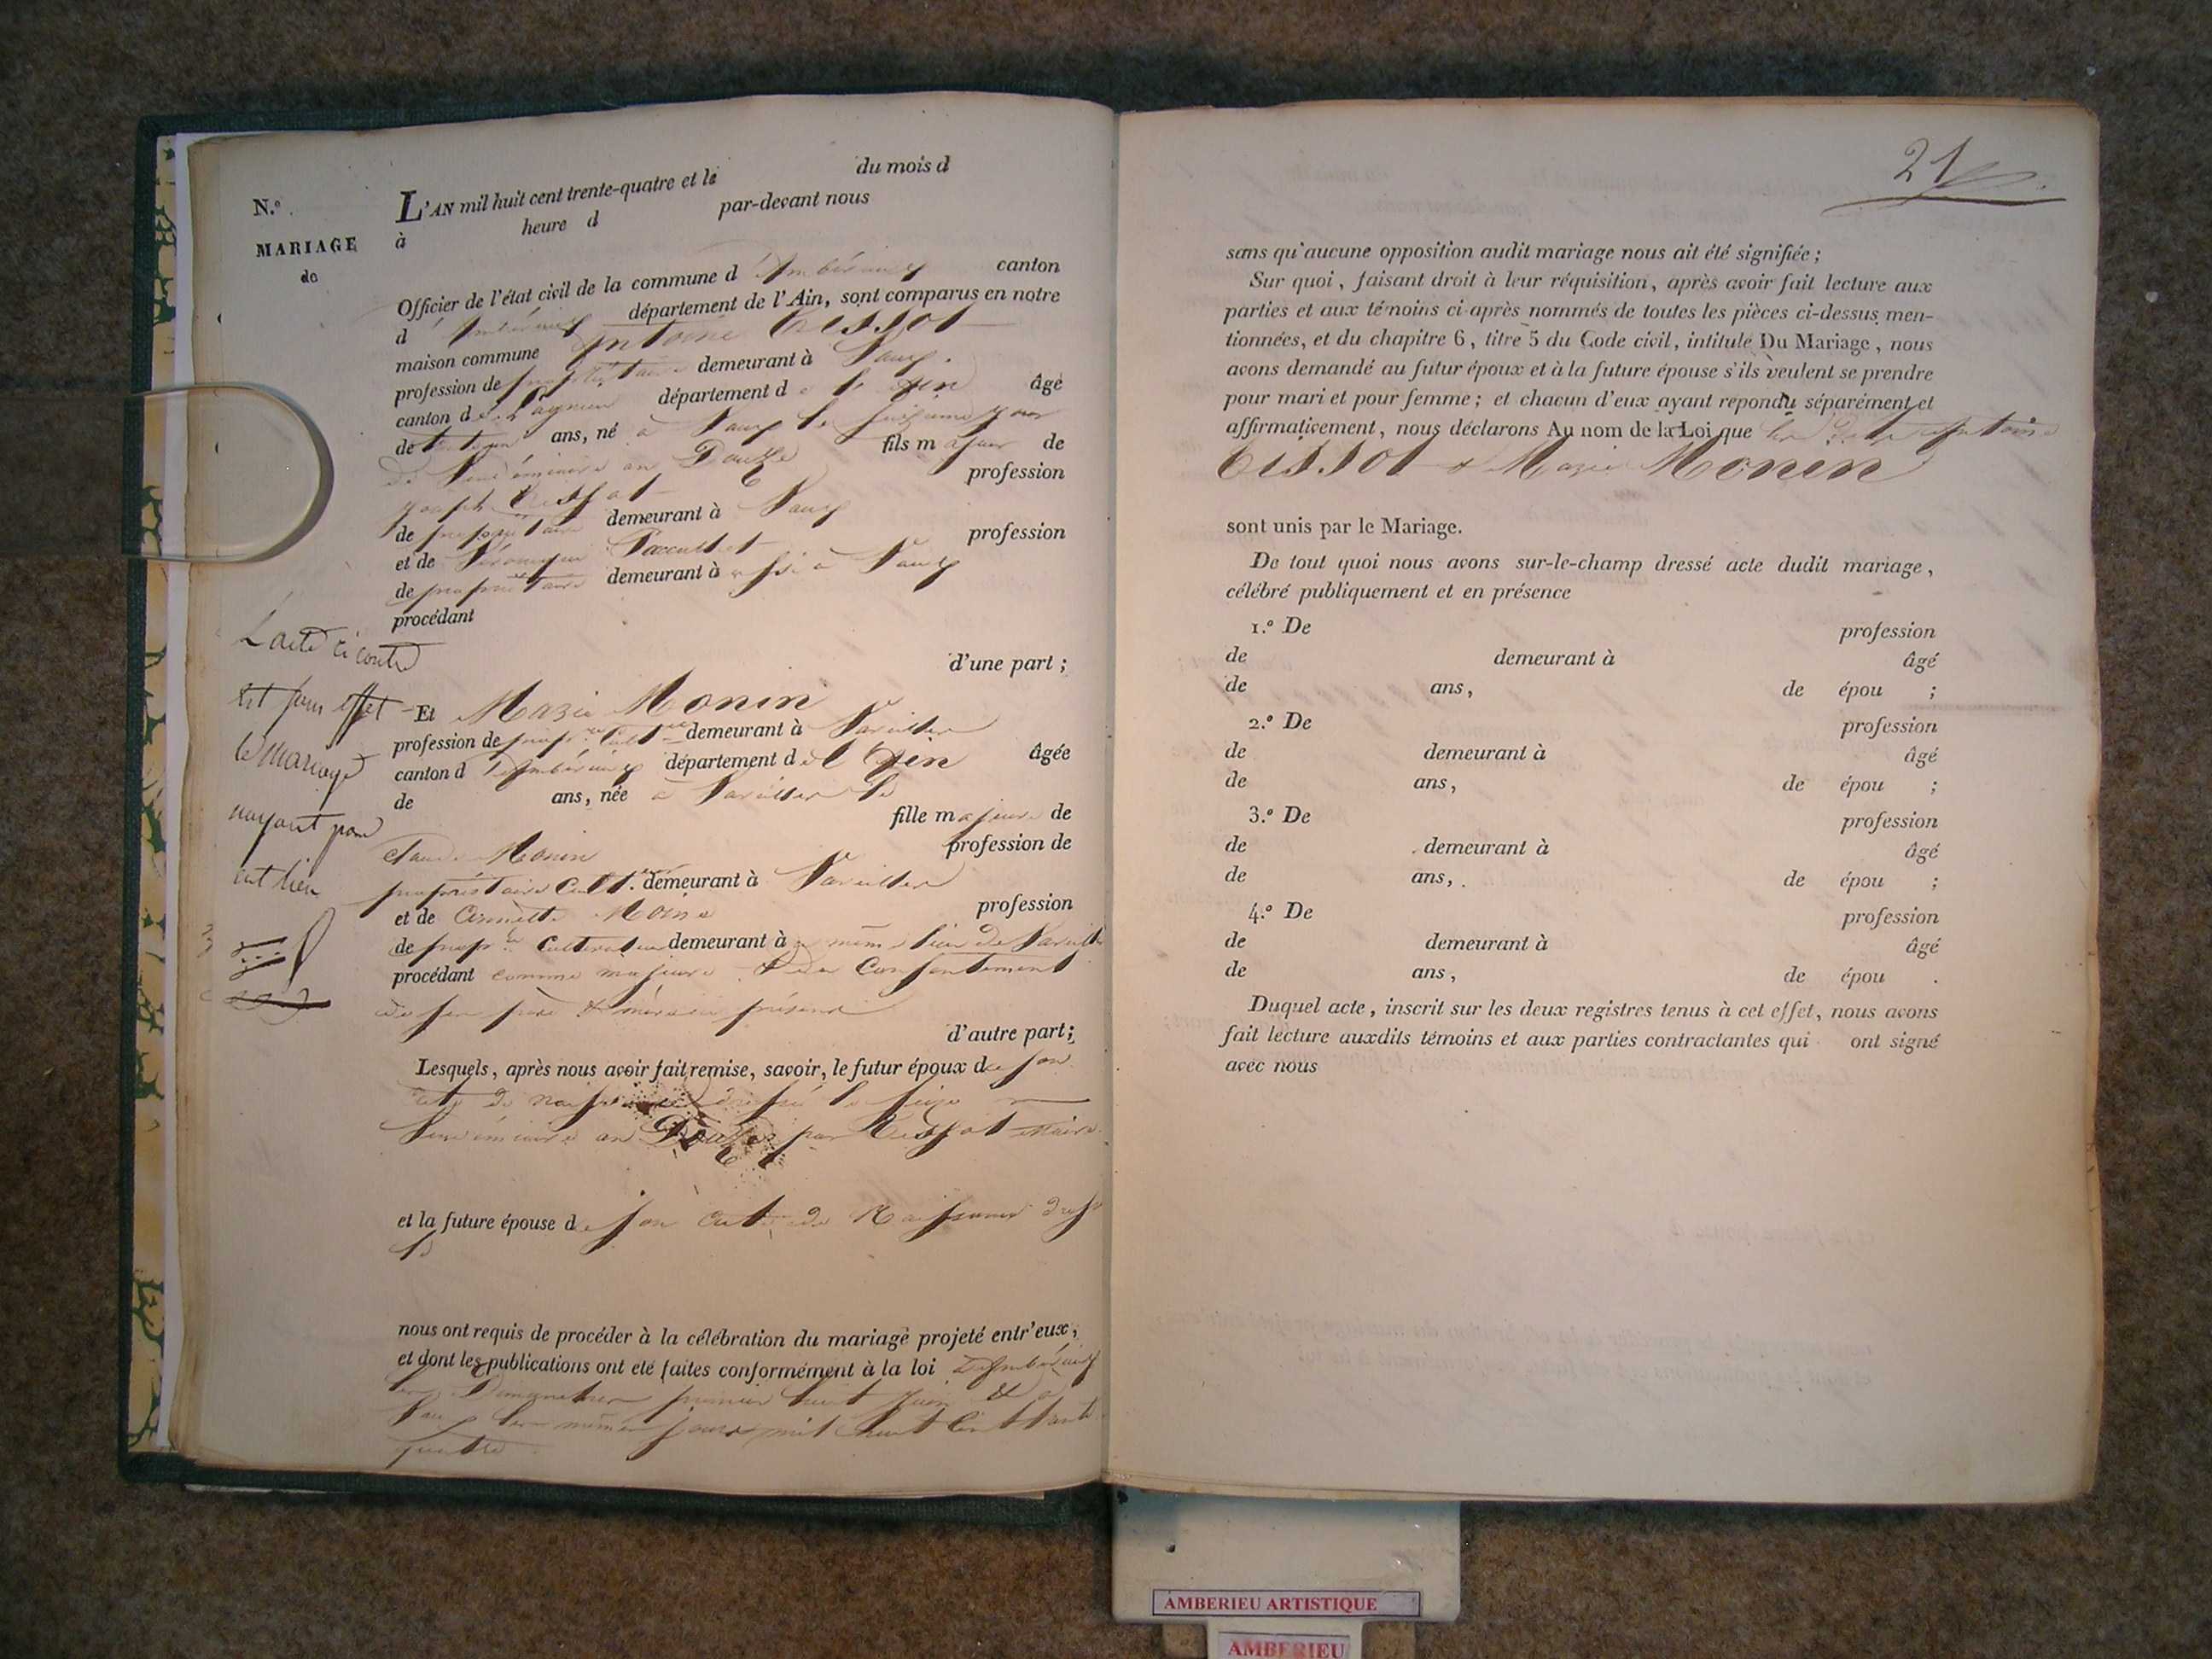 N.º
MARIAGE
de
L'AN mil huit cent trente-quatre et le du mois d
à heure d par-devant nous
Officier de l'état civil de la commune d'Ambérieux canton
d'Ambérieux département de l'Ain, sont comparus en notre
maison commune Antoine Tissot
profession de propriétaire demeurant à Vaux.
canton de Lagnieu département de l'Ain âgé
de trente un ans, né à Vaux le seizieme jour
de Vendémiaire an Douze fils majeur de
joseph Tissot profession
de propriétaire demeurant à Vaux
et de profession
de propriétaire demeurant à Vaux
procédant
d'une part ;
L'acte ci contre
est sans effet
le mariage
nayant pas
eut lieu
Et Marie Monin
profession de demeurant à Vareilles
canton d'Ambérieux département de l'Ain âgée
de ans, née à Vareilles le
fille majeure de
Claude Monin profession de
propriétaire cult. demeurant à Vareilles
et de profession
de demeurant à même lieu de Vareilles
procédant comme majeure & du Consentement
de ses père & mère ici présens
d'autre part ;
Lesquels, après nous avoir fait remise, savoir, le futur époux de son
acte de naissance dressé le seize
Vendémiaire an Douze par Tissot Maire
et la future épouse de son acte de Naissance
le
nous ont requis de procéder à la célébration du mariage projeté entr'eux,
et dont les publications ont eté faites conformément à la loi d'Ambérieux
les Dimanches premier huit Juin & à
Vaux les mêmes jours mil huit cent trente
quatre
21
sans qu'aucune opposition audit mariage nous ait été signifiée ;
Sur quoi, faisant droit à leur réquisition, après avoir fait lecture aux
parties et aux témoins ci-après nommés de toutes les pièces ci-dessus men-
tionnées, et du chapitre 6, titre 5 du Code civil, intitule Du Mariage, nous
avons demandé au futur époux et à la future épouse s'ils veulent se prendre
pour mari et pour femme ; et chacun d'eux ayant repondu séparément et
affirmativement, nous déclarons Au nom de la Loi que les Antoine
Tissot & Marie Monin
sont unis par le Mariage.
De tout quoi nous avons sur-le-champ dressé acte dudit mariage,
célébré publiquement et en présence
1.º De profession
de demeurant à âgé
de ans, de épou ;
2.º De profession
de demeurant à âgé
de ans, de épou ;
3.º De profession
de demeurant à âgé
de ans, de épou ;
4.º De profession
de demeurant à âgé
de ans, de épou .
Duquel acte, inscrit sur les deux registres tenus à cet effet, nous avons
fait lecture auxdits témoins et aux parties contractantes qui ont signé
avec nous
AMBERIEU ARTISTIQUE
AMBERIEU